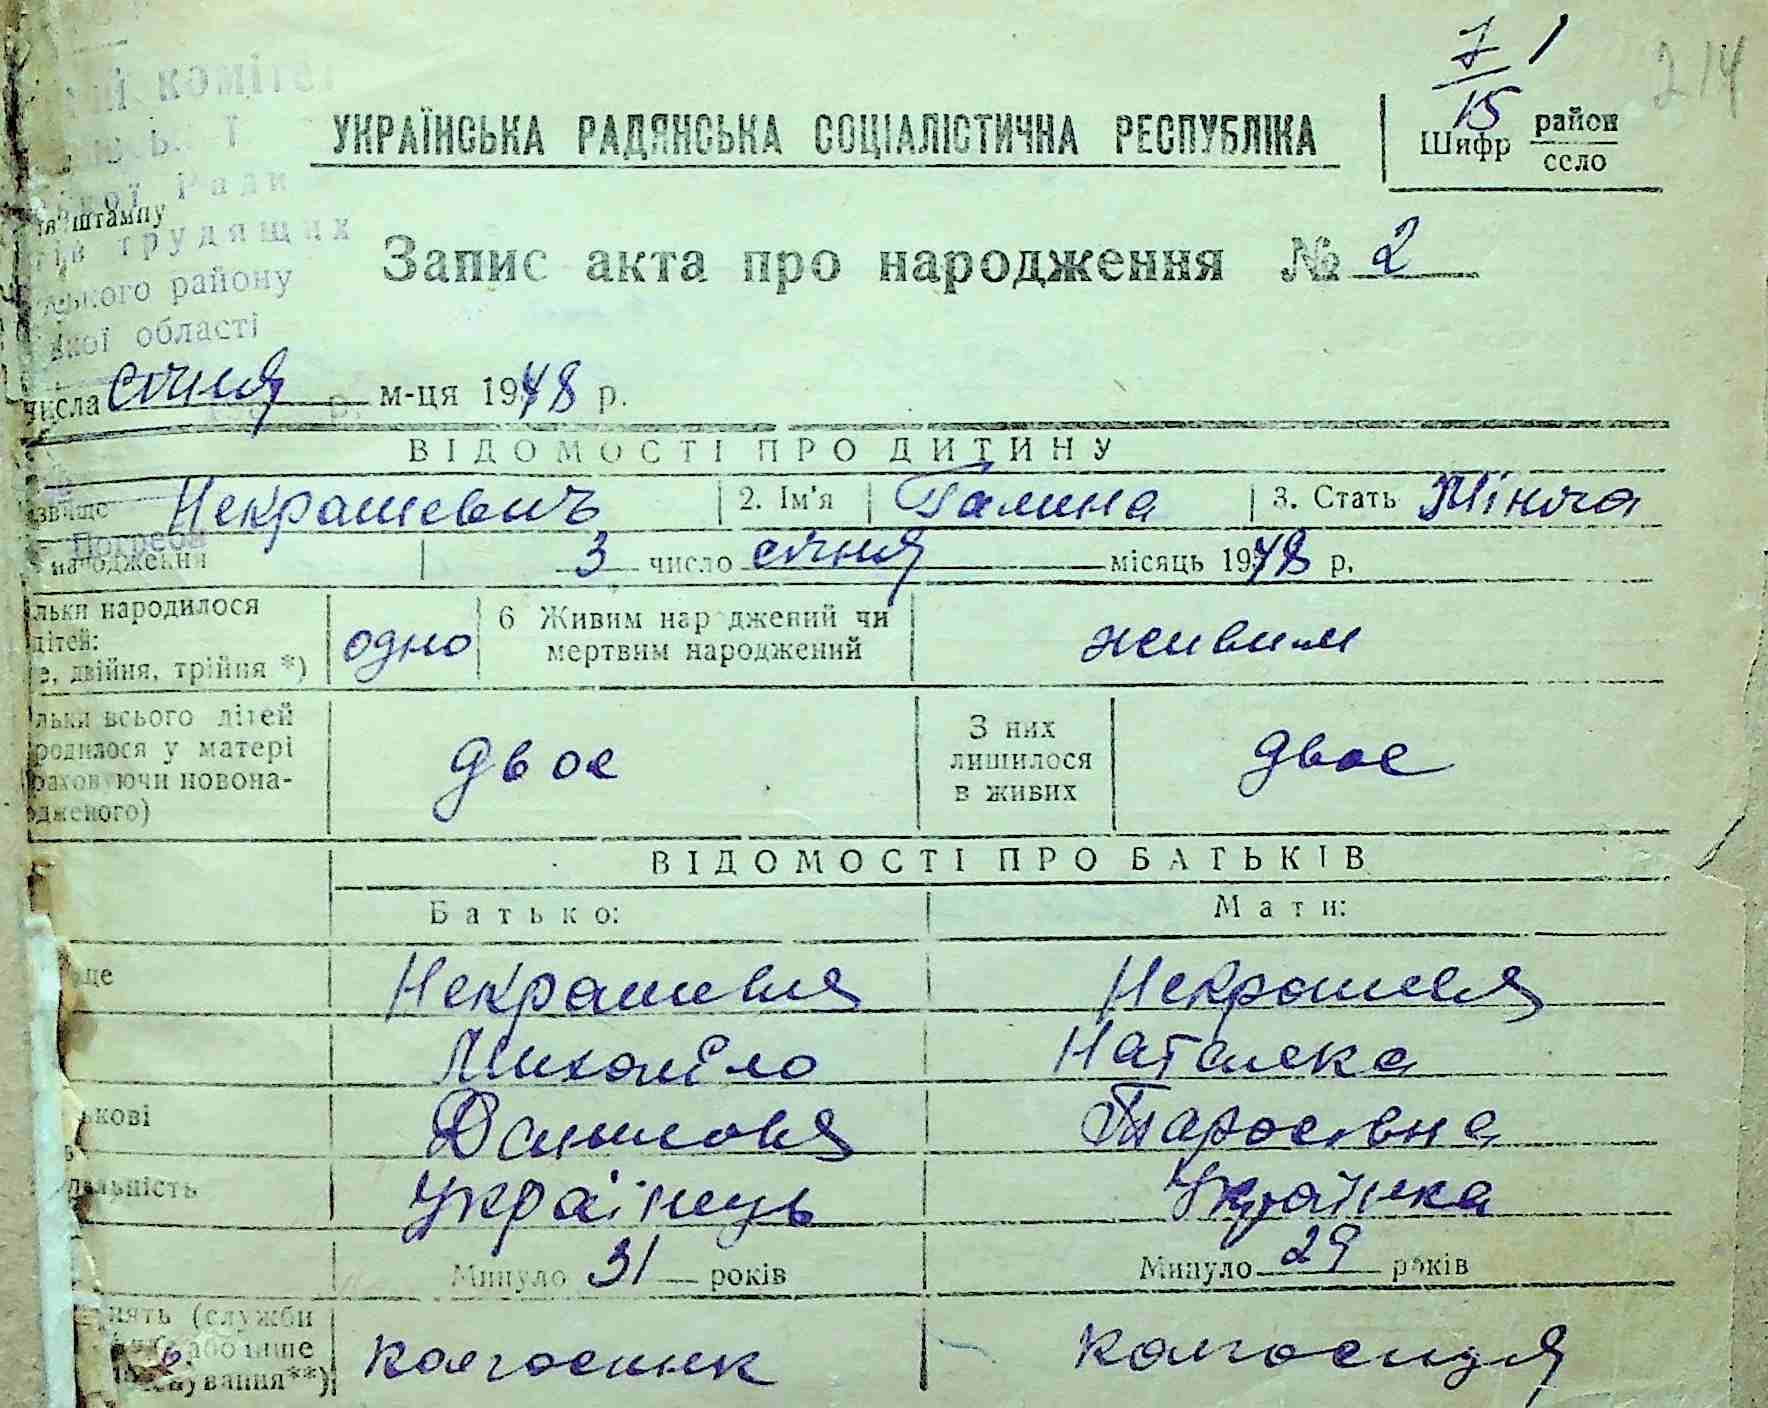 7 1 214
15
УКРАЇНСЬКА РАДЯНСЬКА СОЦІАЛІСТИЧНА РЕСПУБЛІКА
Шифр район
село
ій коміте
ької Ради
штампу
трудящих
ького району
кої області
Запис акта про народження № 2
числа січня м-ця 1948 р.
ВІДОМОСТІ ПРО ДИТИНУ
звище Некрашевич 2. Ім'я Галина 3. Стать Жіноча
Погреби
народження 3 число січня місяць 1948 р.
льки народилося
дітей:
е, двійня, трійня *)
одно
6 Живим народжений чи
мертвим народжений
живим
льки всього дітей
родилося у матері
раховуючи новона-
одженого)
двое
З них
лишилося
в живих
двое
ВІДОМОСТІ ПРО БАТЬКІВ
Батько: Мати:
ще Некрашевич Некрашевич
Михайло Наталка
ькові Данилович Тарасівна
альність Українець Українка
Минуло 31 років Минуло 29 років
нять (служби
або інше
ування**)
колгоспник колгоспниця